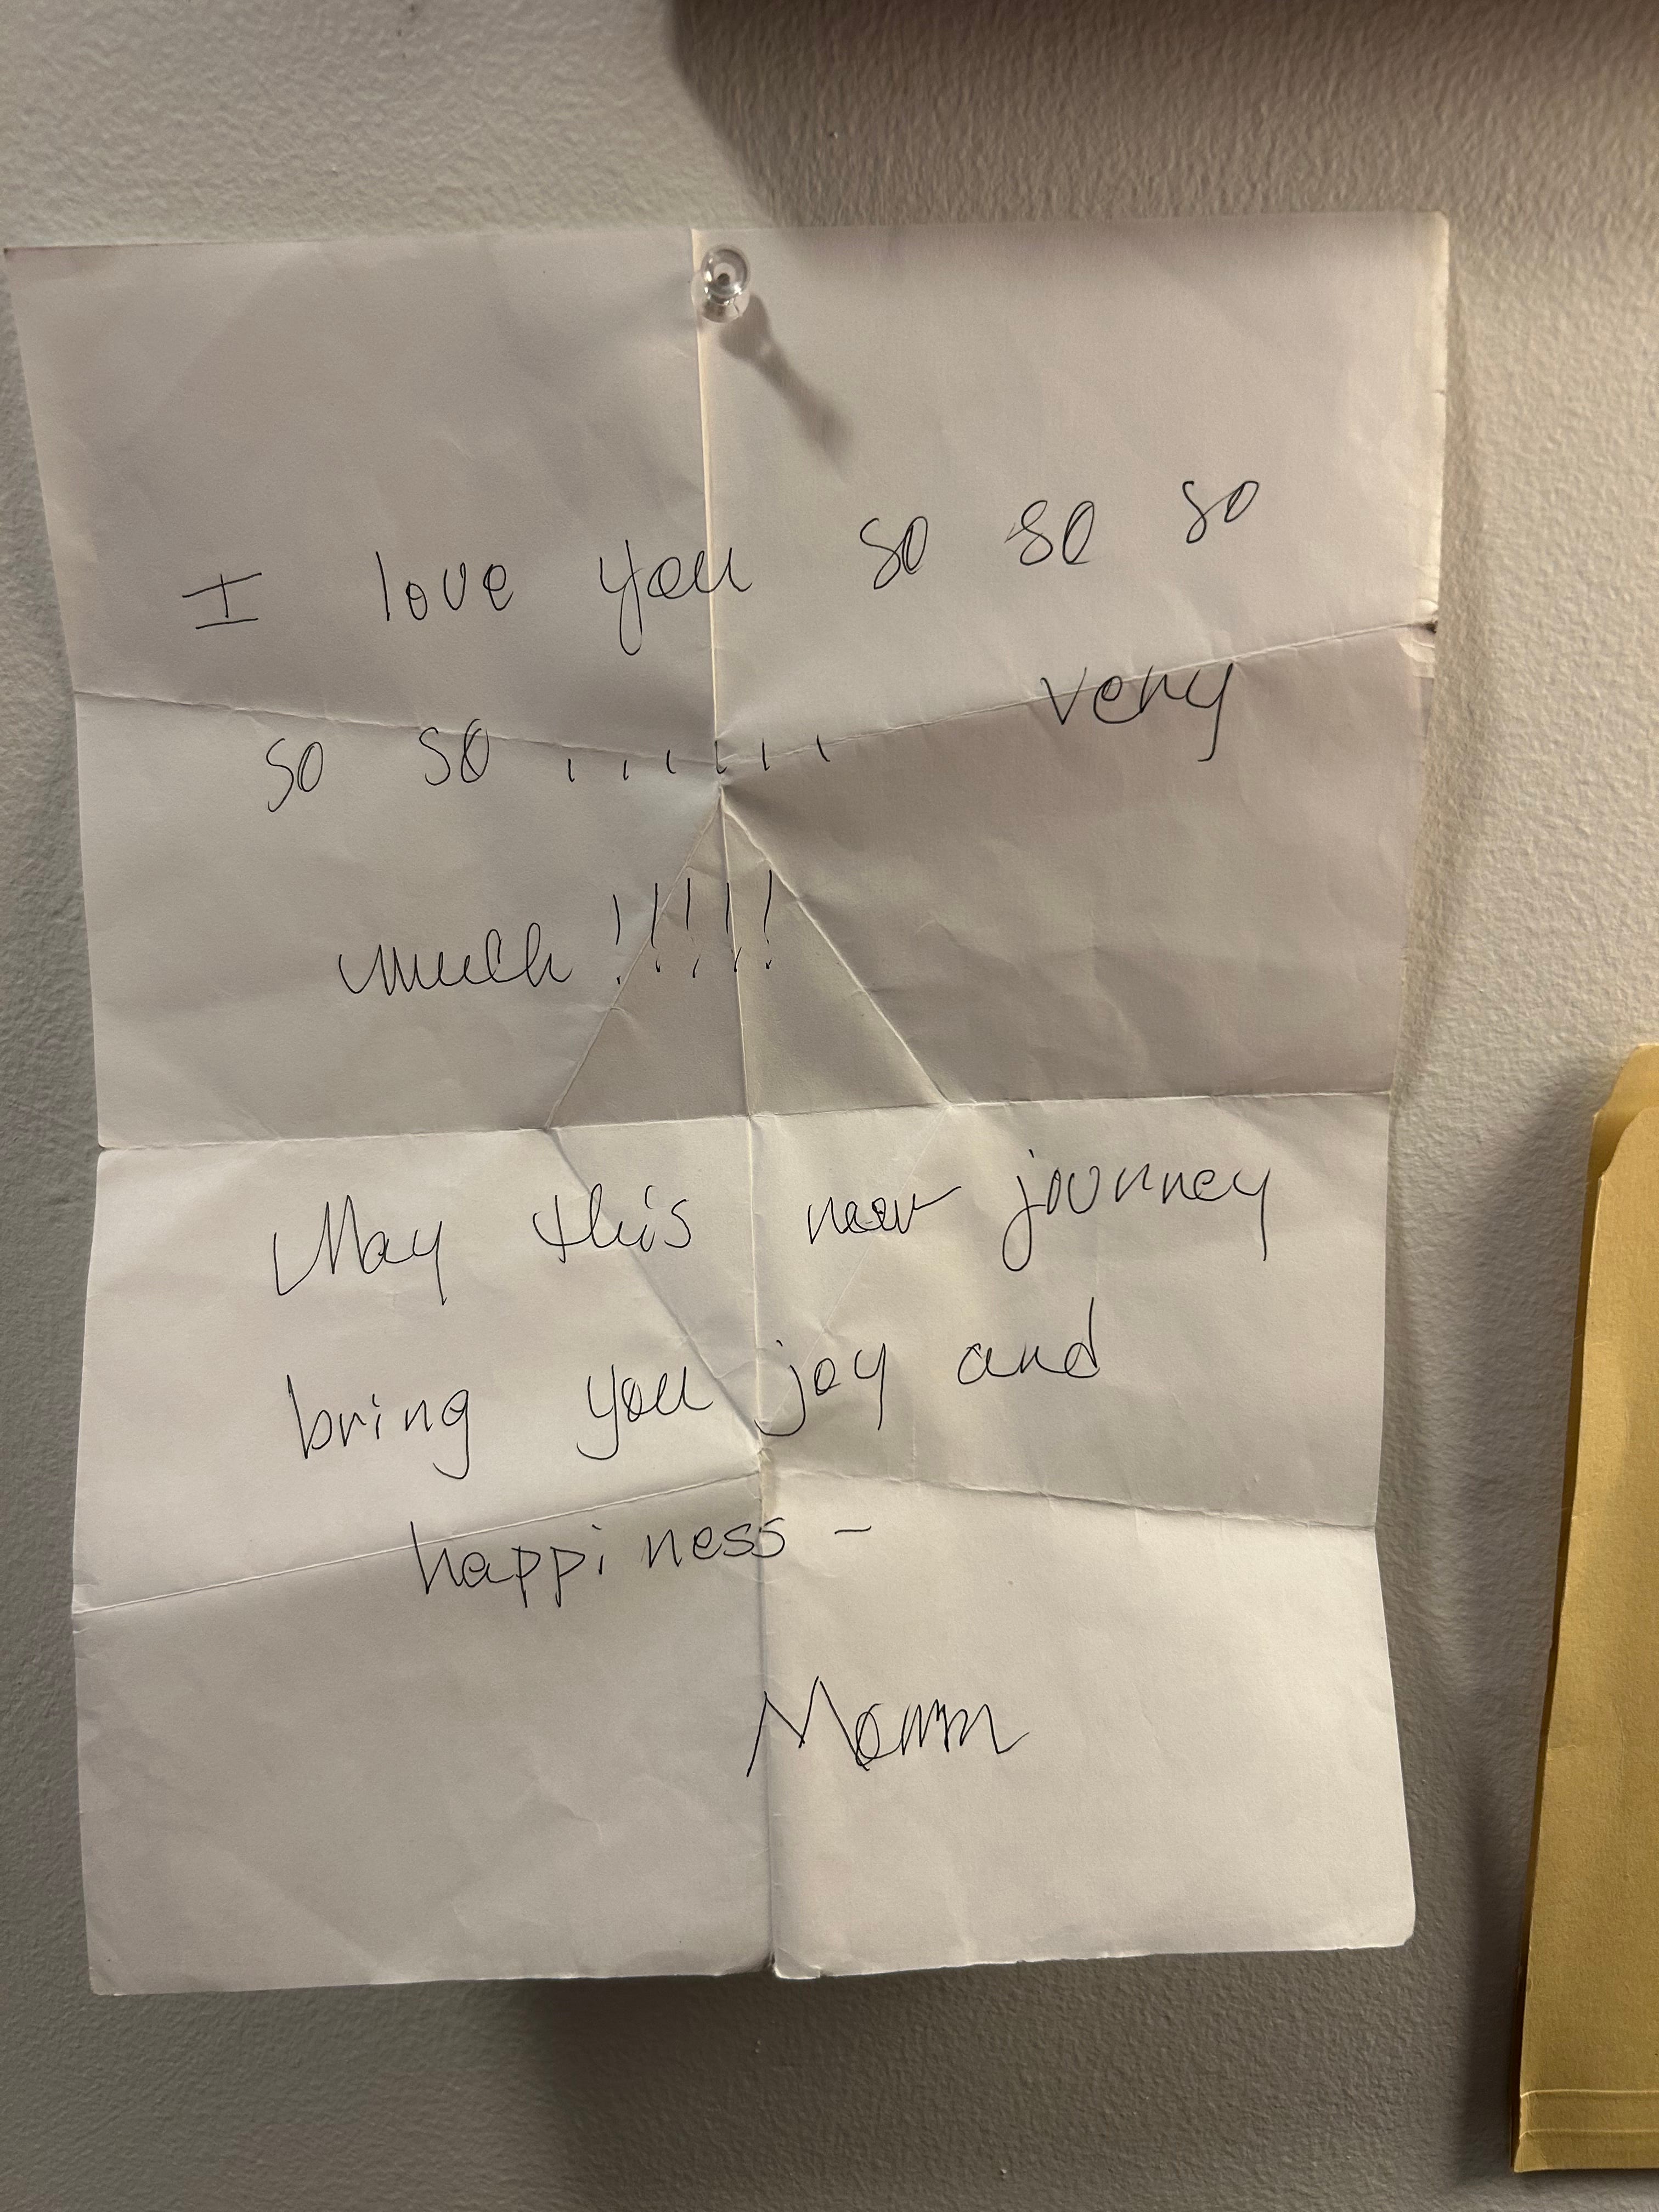 I love you so so so
so so ...... very
much!!!!!
May this new journey
bring you joy and
happiness -
Mom